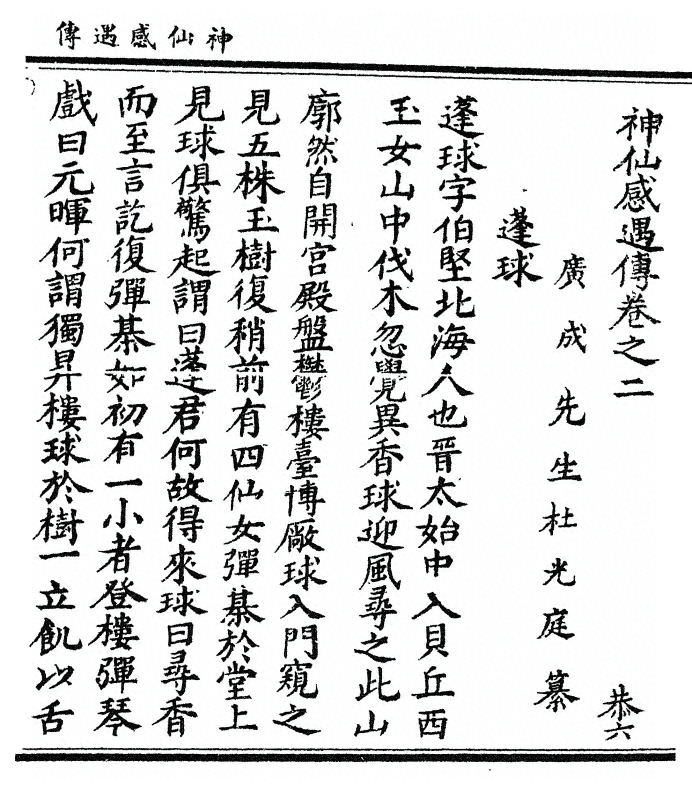 神仙感遇傳
神仙感遇傳卷之二
恭六
廣成先生杜光庭纂
蓬球
蓬球字伯堅北海人也晉太始中入貝丘西
玉女山中伐木忽覺異香球迎風尋之此山
廓然自開宮殿盤鬱樓臺博敞球入門窺之
見五株玉樹復稍前有四仙女彈棊於堂上
見球俱驚起謂曰蓬君何故得來球曰尋香
而至言訖復彈棊如初有一小者登樓彈琴
戲曰元暉何謂獨昇樓球於樹一立飢以舌